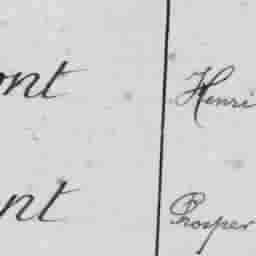 ont Henri
nt Prosper